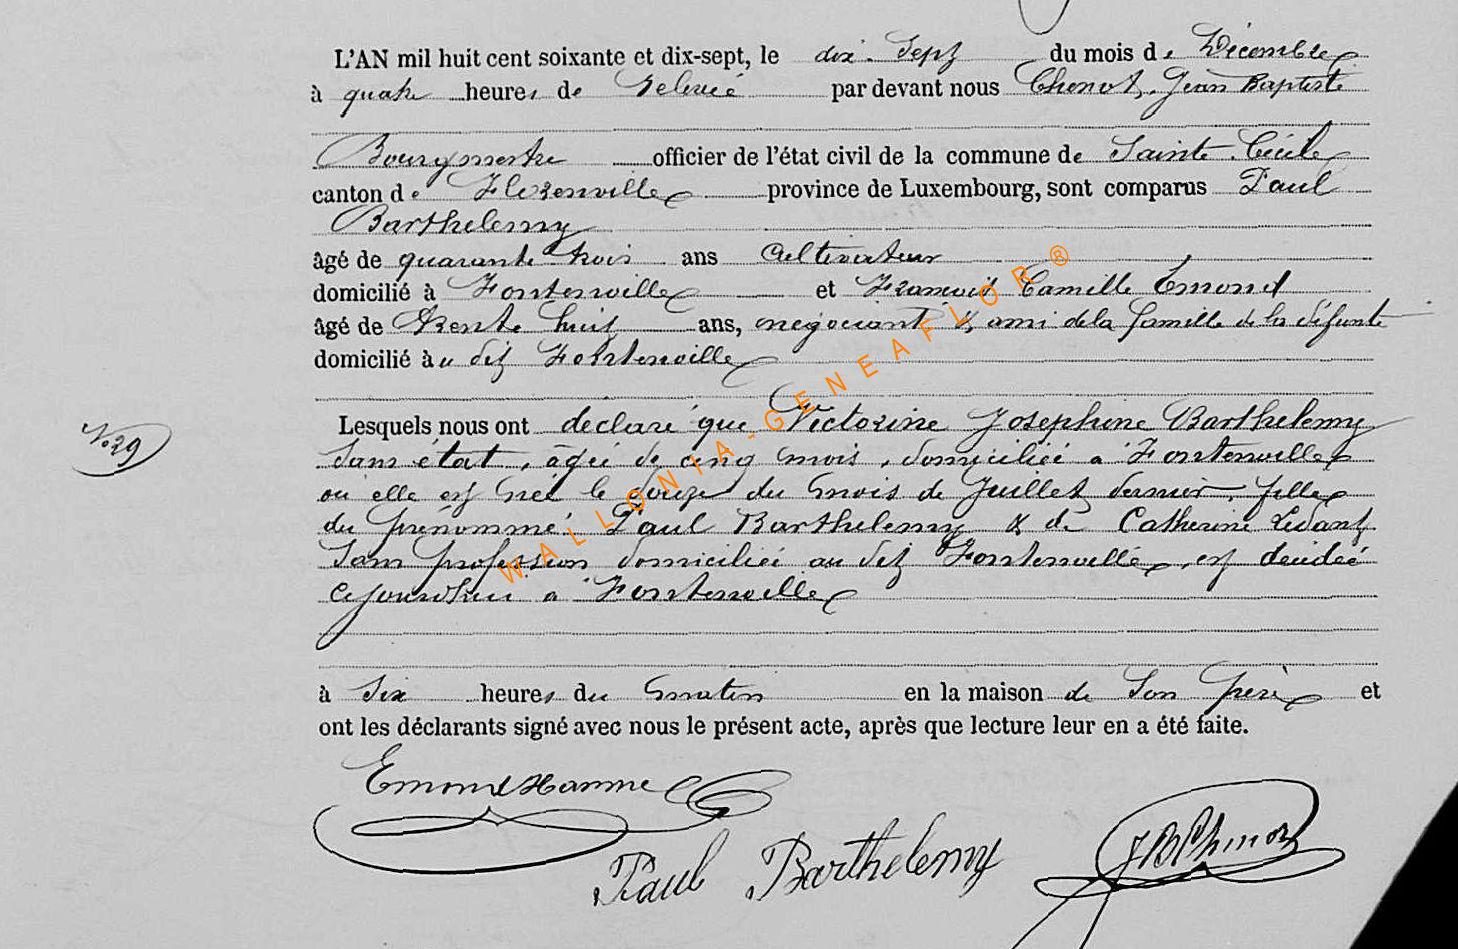 L'AN mil huit cent soixante et dix-sept, le dix-sept du mois de Décembre
à quatre heures de relevée par devant nous Chenot, Jean Baptiste
Bourgmestre officier de l'état civil de la commune de Sainte-Cécile
canton de Florenville province de Luxembourg, sont comparus Paul
Barthelemy
âgé de quarante trois ans Cultivateur
domicilié à Fontenoille et François Camille Emond
âgé de trente huit ans, négociant & ami de la famille de la défunte
domicilié à u dit Fontenoille
Lesquels nous ont déclaré que Victorine Josephine Barthelemy
N° 29
sans état, âgée de cinq mois, domiciliée à Fontenoille
où elle est née le douze du mois de Juillet dernier, fille
du prénommé Paul Barthelemy & de Catherine Ledant
sans profession domiciliée au dit Fontenoille, est décédée
cejourd'hui à Fontenoille
à six heures du matin en la maison de son père et
ont les déclarants signé avec nous le présent acte, après que lecture leur en a été faite.
Emond Hanne
Paul Barthelemy
JBChenot
WALLONIA-GENEAFLOR ®